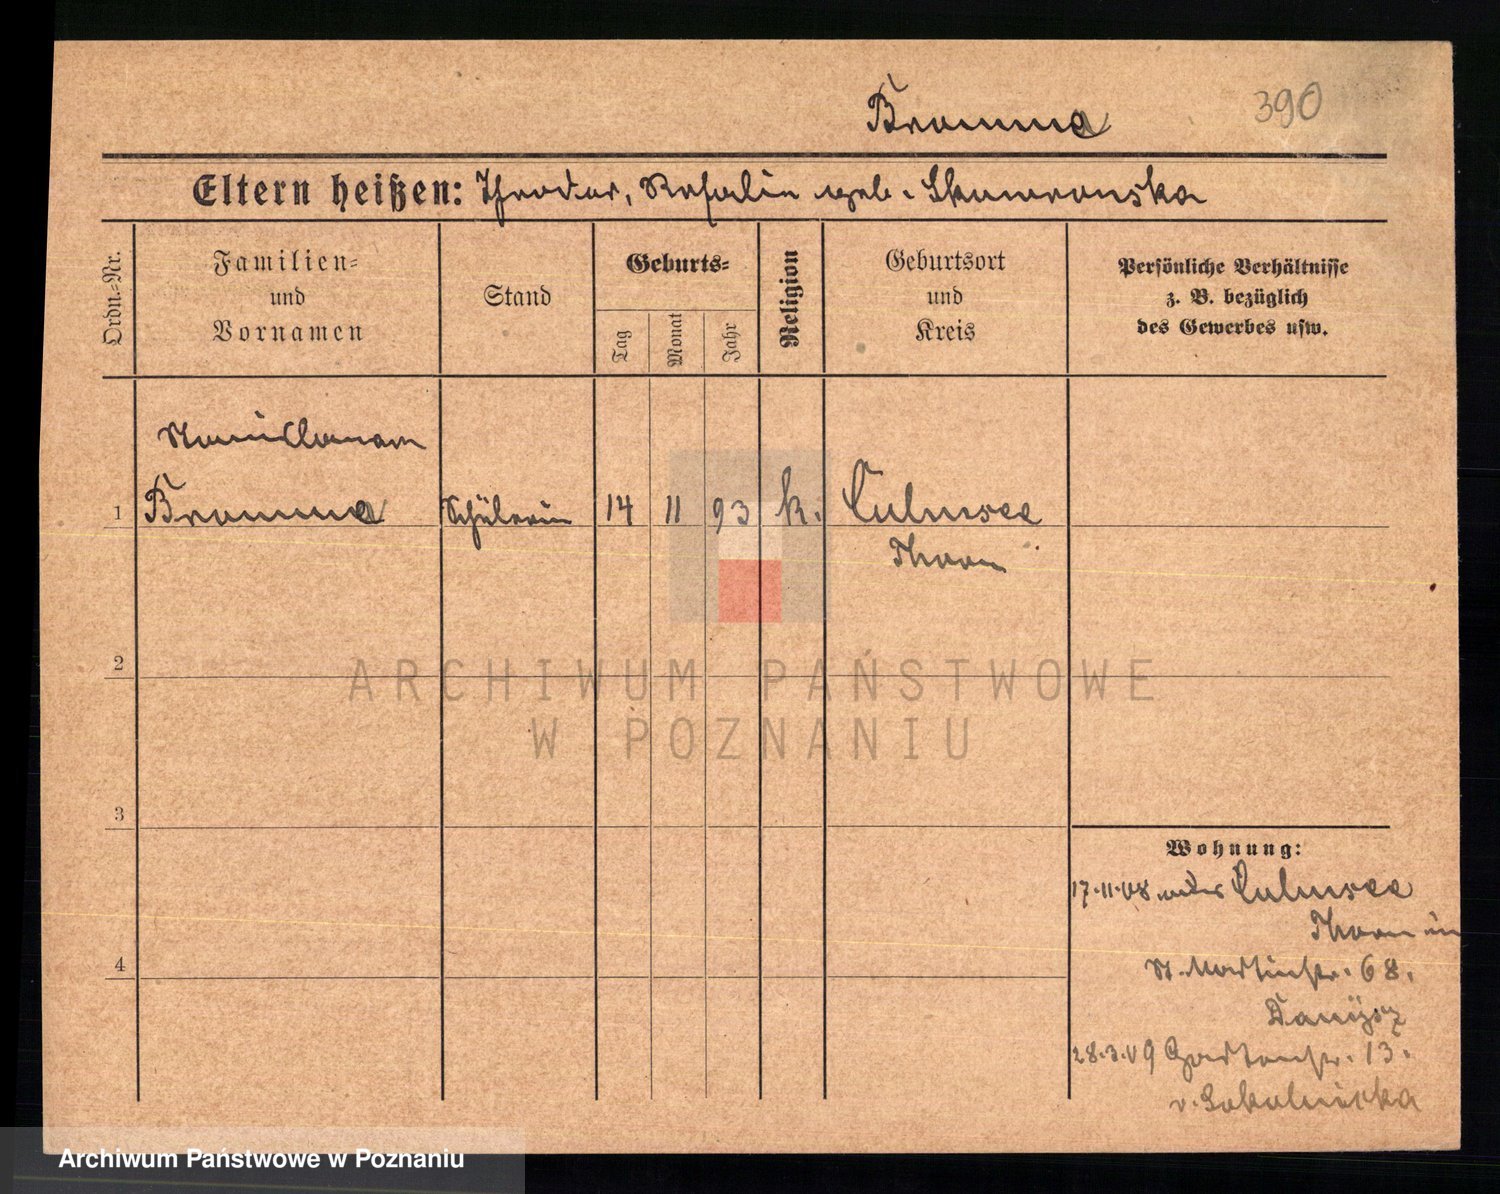 Bromma
390
Eltern heißen: Theodor, Rosalie geb. Skowronska
Ordn.-Nr.
Familien-
und
Vornamen
Stand
Geburts-
Tag
Monat
Jahr
Religion
Geburtsort
und
Kreis
Persönliche Verhältnisse
z. B. bezüglich
des Gewerbes usw.
1
Bromma
Schülerin
14
11
93
k.
Culmsee
Thorn
2
ARCHIWUM PAŃSTWOWE
W POZNANIU
3
4
Wohnung:
17.11.08 Culmsee
Thorn in
St. Martinstr. 68.
Danÿsz
28.3.09 Gartenstr. 13.
v. Sokolnicka
Archiwum Państwowe w Poznaniu